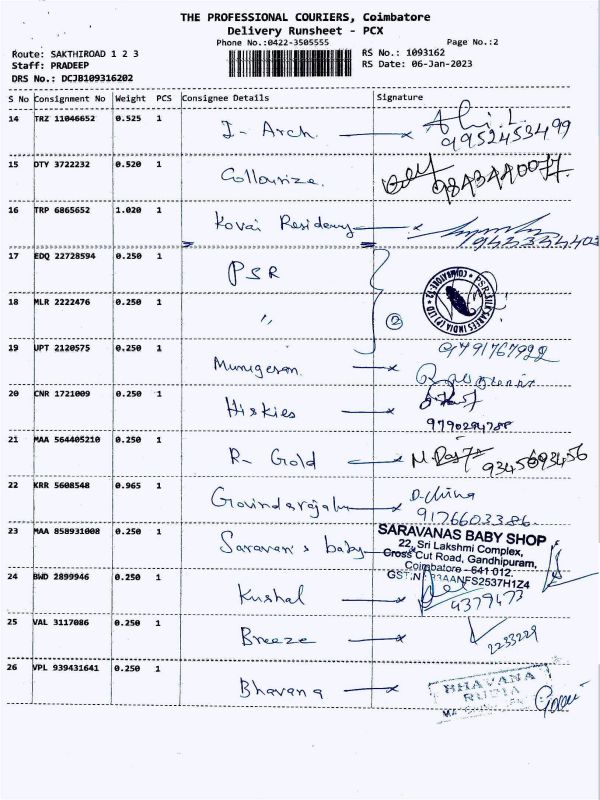 THE PROFESSIONAL COURIERS, Coimbatore
Delivery Runsheet - PCX
Phone No.:0422-3505555 Page No.:2
Route: SAKTHIROAD 1 2 3 RS No.: 1093162
Staff: PRADEEP RS Date: 06-Jan-2023
DRS No.: DCJB109316202
S No Consignment No Weight PCS Consignee Details Signature
14 TRZ 11046652 0.525 1 I- Arch.
9952453499
15 DTY 3722232 0.520 1 Collourize.
16 TRP 6865652 1.020 1 Kovai Residency
17 EDQ 22728594 0.250 1 PSR
PSR SILK SAREES INDIA (P) LTD COIMBATORE-12
18 MLR 2222476 0.250 1 " 2
19 UPT 2120575 0.250 1 Murugesan 9791767922
20 CNR 1721009 0.250 1 Hiskies
9790294788
21 MAA 564405210 0.250 1 R- Gold 9345693456
22 KRR 5608548 0.965 1 Govindarajalu D. china
9176603386.
23 MAA 858931008 0.250 1 Saravan's baby SARAVANAS BABY SHOP
22, Sri Lakshmi Complex,
Cross Cut Road, Gandhipuram,
Coimbatore - 641 012.
24 BWD 2899946 0.250 1 Kushal 4379473
25 VAL 3117086 0.250 1 Breeze 2233229
26 VPL 939431641 0.250 1 Bhavana BHAVANA